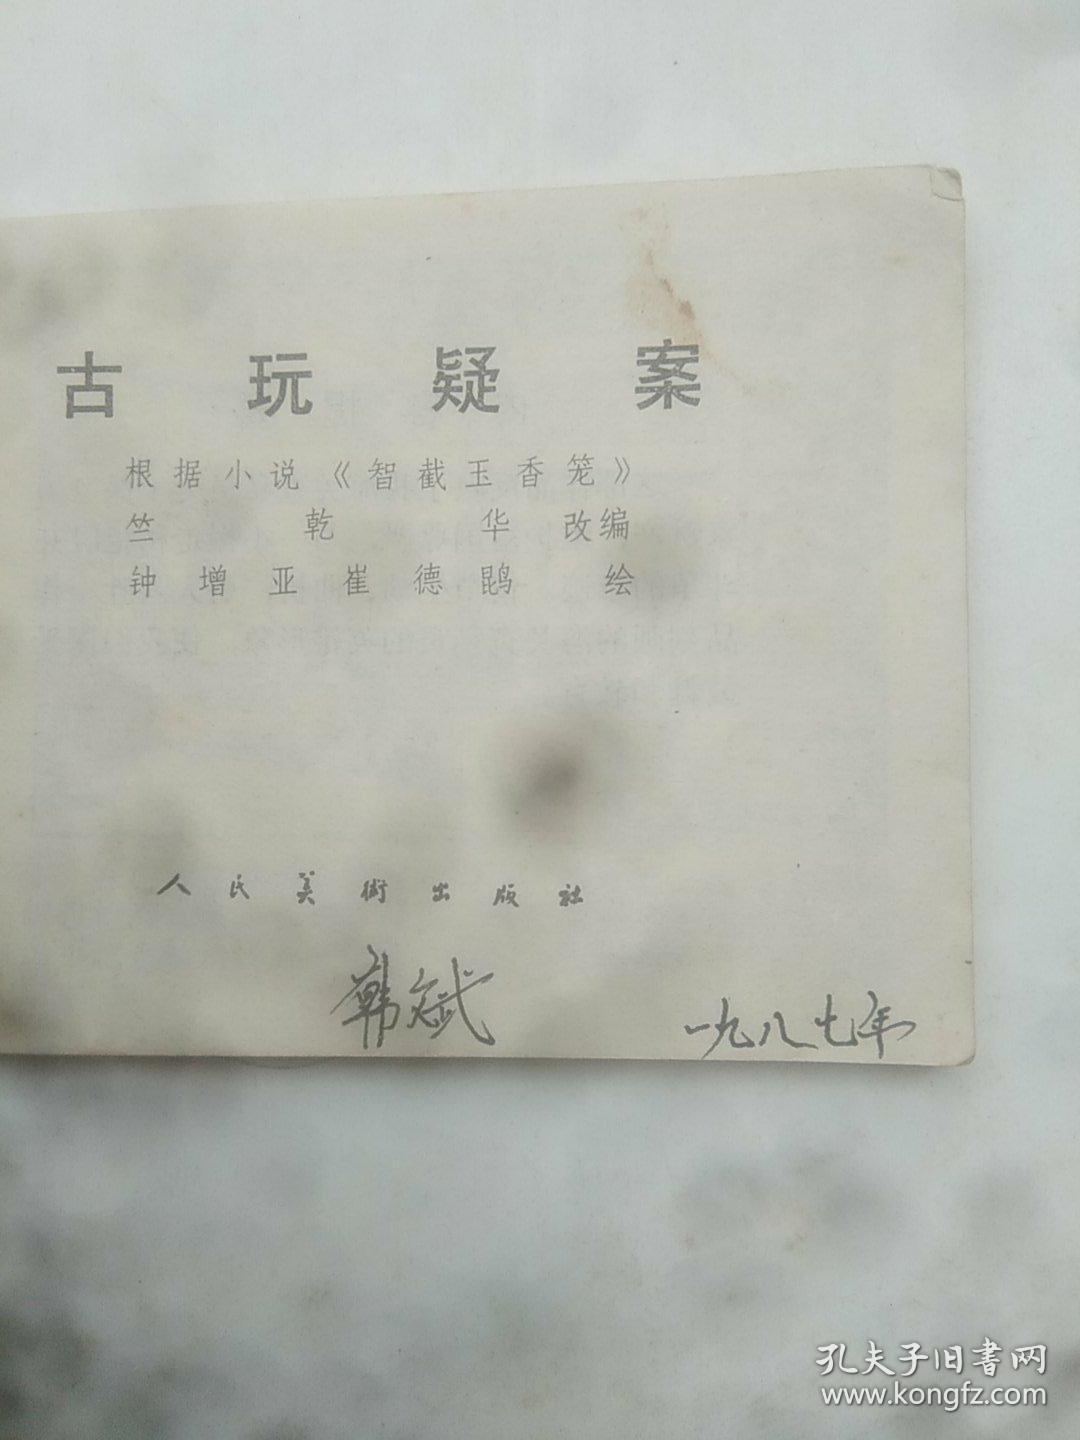 古玩疑案
根据小说《智截玉香笼》
竺乾华改编
钟增亚崔德鹍绘
人民美術出版社
韩斌 一九八七年
孔夫子旧書网
www.kongfz.com